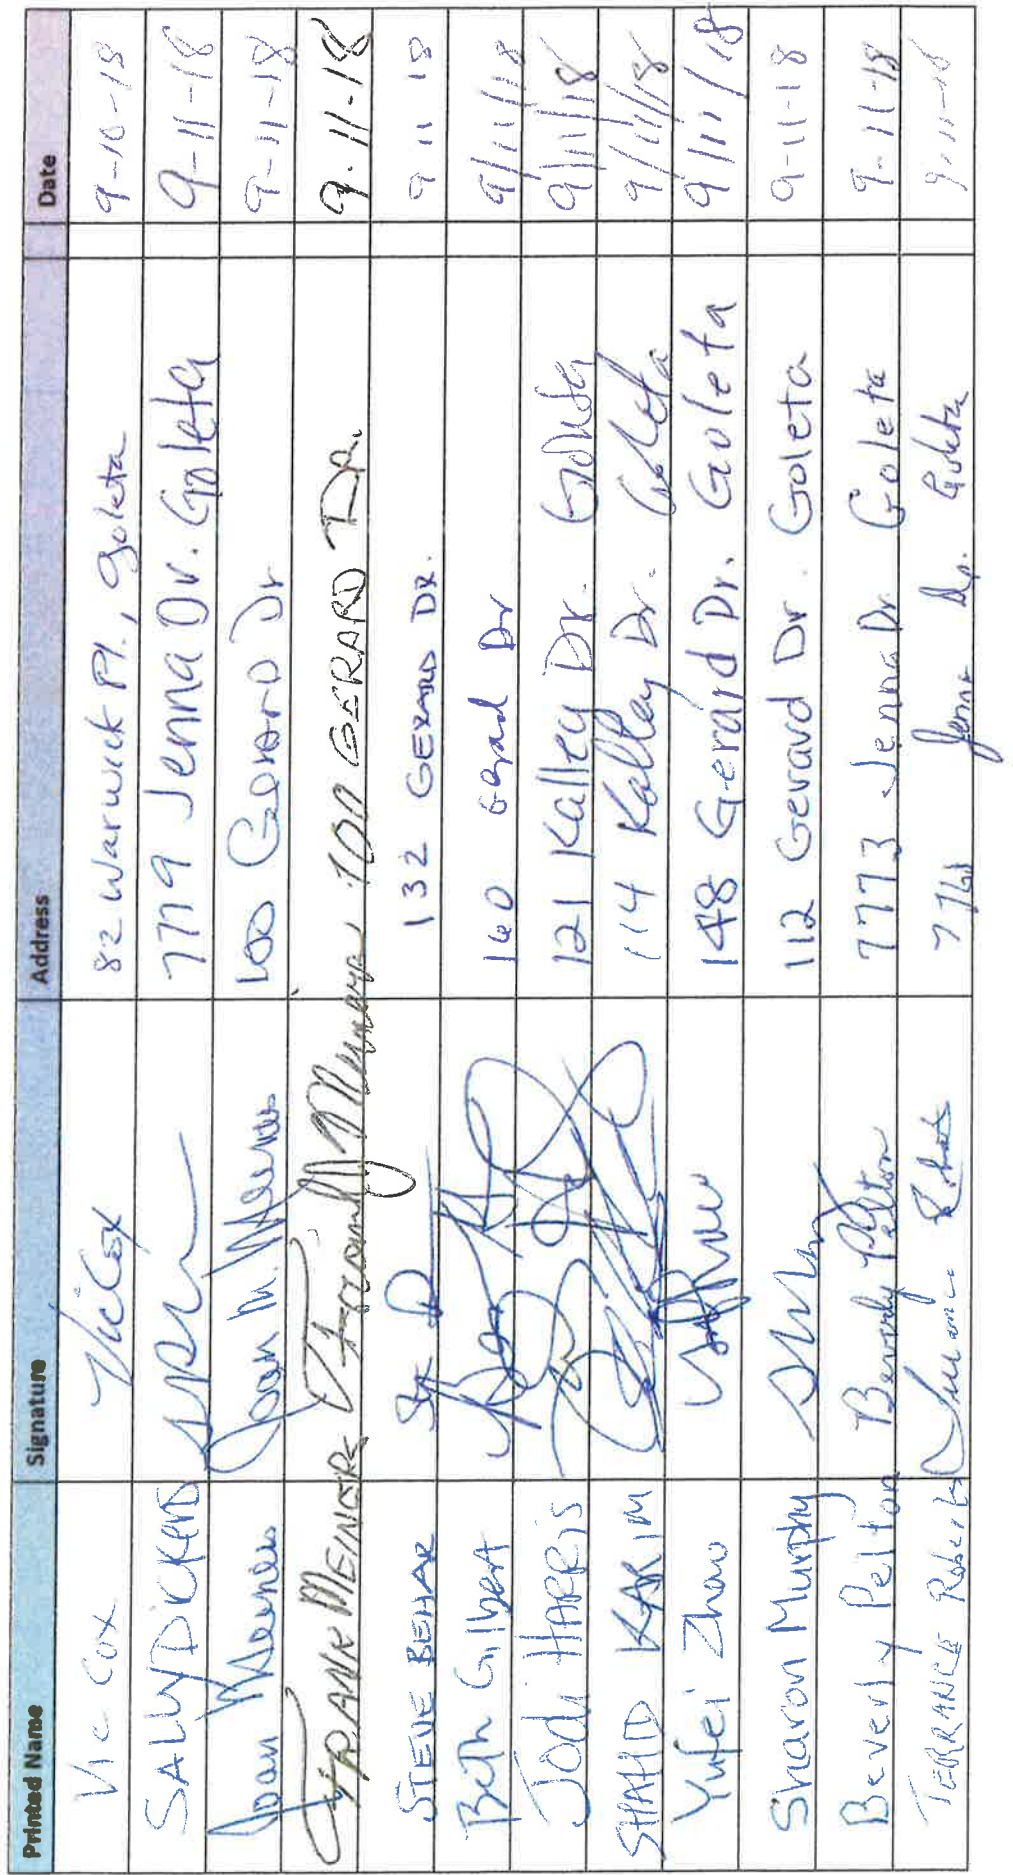 Printed Name Signature Address Date
Vic Cox Vic Cox 82 Warwick Pl., Goleta 9-10-18
SALLY DICKENS 7779 Jenna Dr. Goleta 9-11-18
Joan 100 Gerard Dr 9-11-18
FRANK 100 GERARD DR. 9-11-18
STEVE BEHAR 132 GERARD DR. 9 11 18
Beth Gilbert 160 Dr 9/11/18
Jodi HARRIS 121 Kalley Dr. Goleta 9/11/18
SHAHID KARIM 114 Kalley Dr. Goleta 9/11/18
Yufei Zhao 148 Gerard Dr. Goleta 9/11/18
Sharon Murphy 112 Gerard Dr. Goleta 9-11-18
Beverly Pelton Beverly Pelton 7773 Jenna Dr Goleta 9-11-18
TERRANCE Roberts Jenna Dr. Goleta 9-11-18